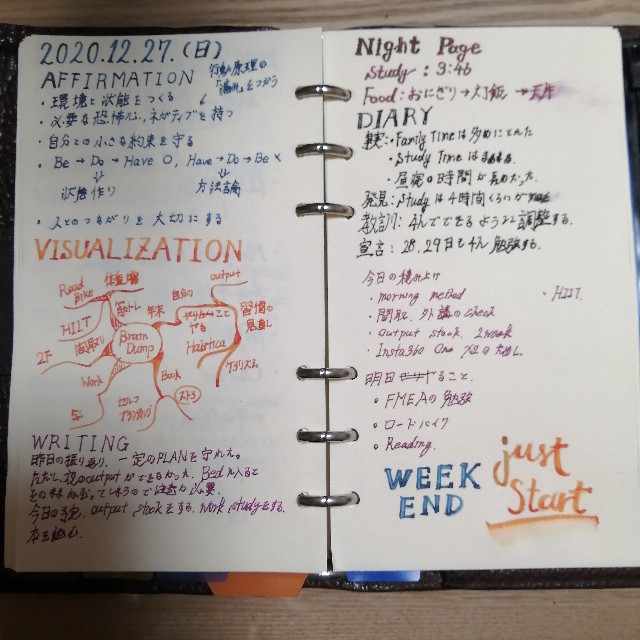 2020.12.27.(日)
行動原理の
「漏れ」をつかう
AFFIRMATION
・環境と状態をつくる
・必要な恐怖心、ネガティブを持つ
・自分との小さな約束を守る
・Be → Do → Have ○, Have → Do → Be ×
状態作り 方法論
・人とのつながりを大切にする
VISUALIZATION
Road Bike
体重増
筋トレ
HIIT
間取り
2F
Work
Brain Dump
年末
やること
やる
output
習慣の
見直し
Habithox
Book
WRITING
昨日の振り返り、一定のPLANを守れた。
ただし、夜のoutputができなかった。Bedに入ると
そのまま ので注意が必要。
今日の予定、output stockをする、work studyをする。
本を読む。
Night Page
Study : 3:46
Food : おにぎり → 灯飯 →
DIARY
事実 : ・Family Timeは多めにとれた
・Study Timeは
・昼寝の時間が長めだった。
発見 : Studyは4時間くらいが
教訓 : 4hでできるように調整する。
宣言 : 28, 29日も4h 勉強する。
今日の積み上げ
・morning method
・HIIT.
・間取、外構のcheck
・output stock. 1week
・Insta360 One X2の
明日やること.
・FMEAの勉強
・ロードバイク
・Reading.
WEEK
END
just
Start